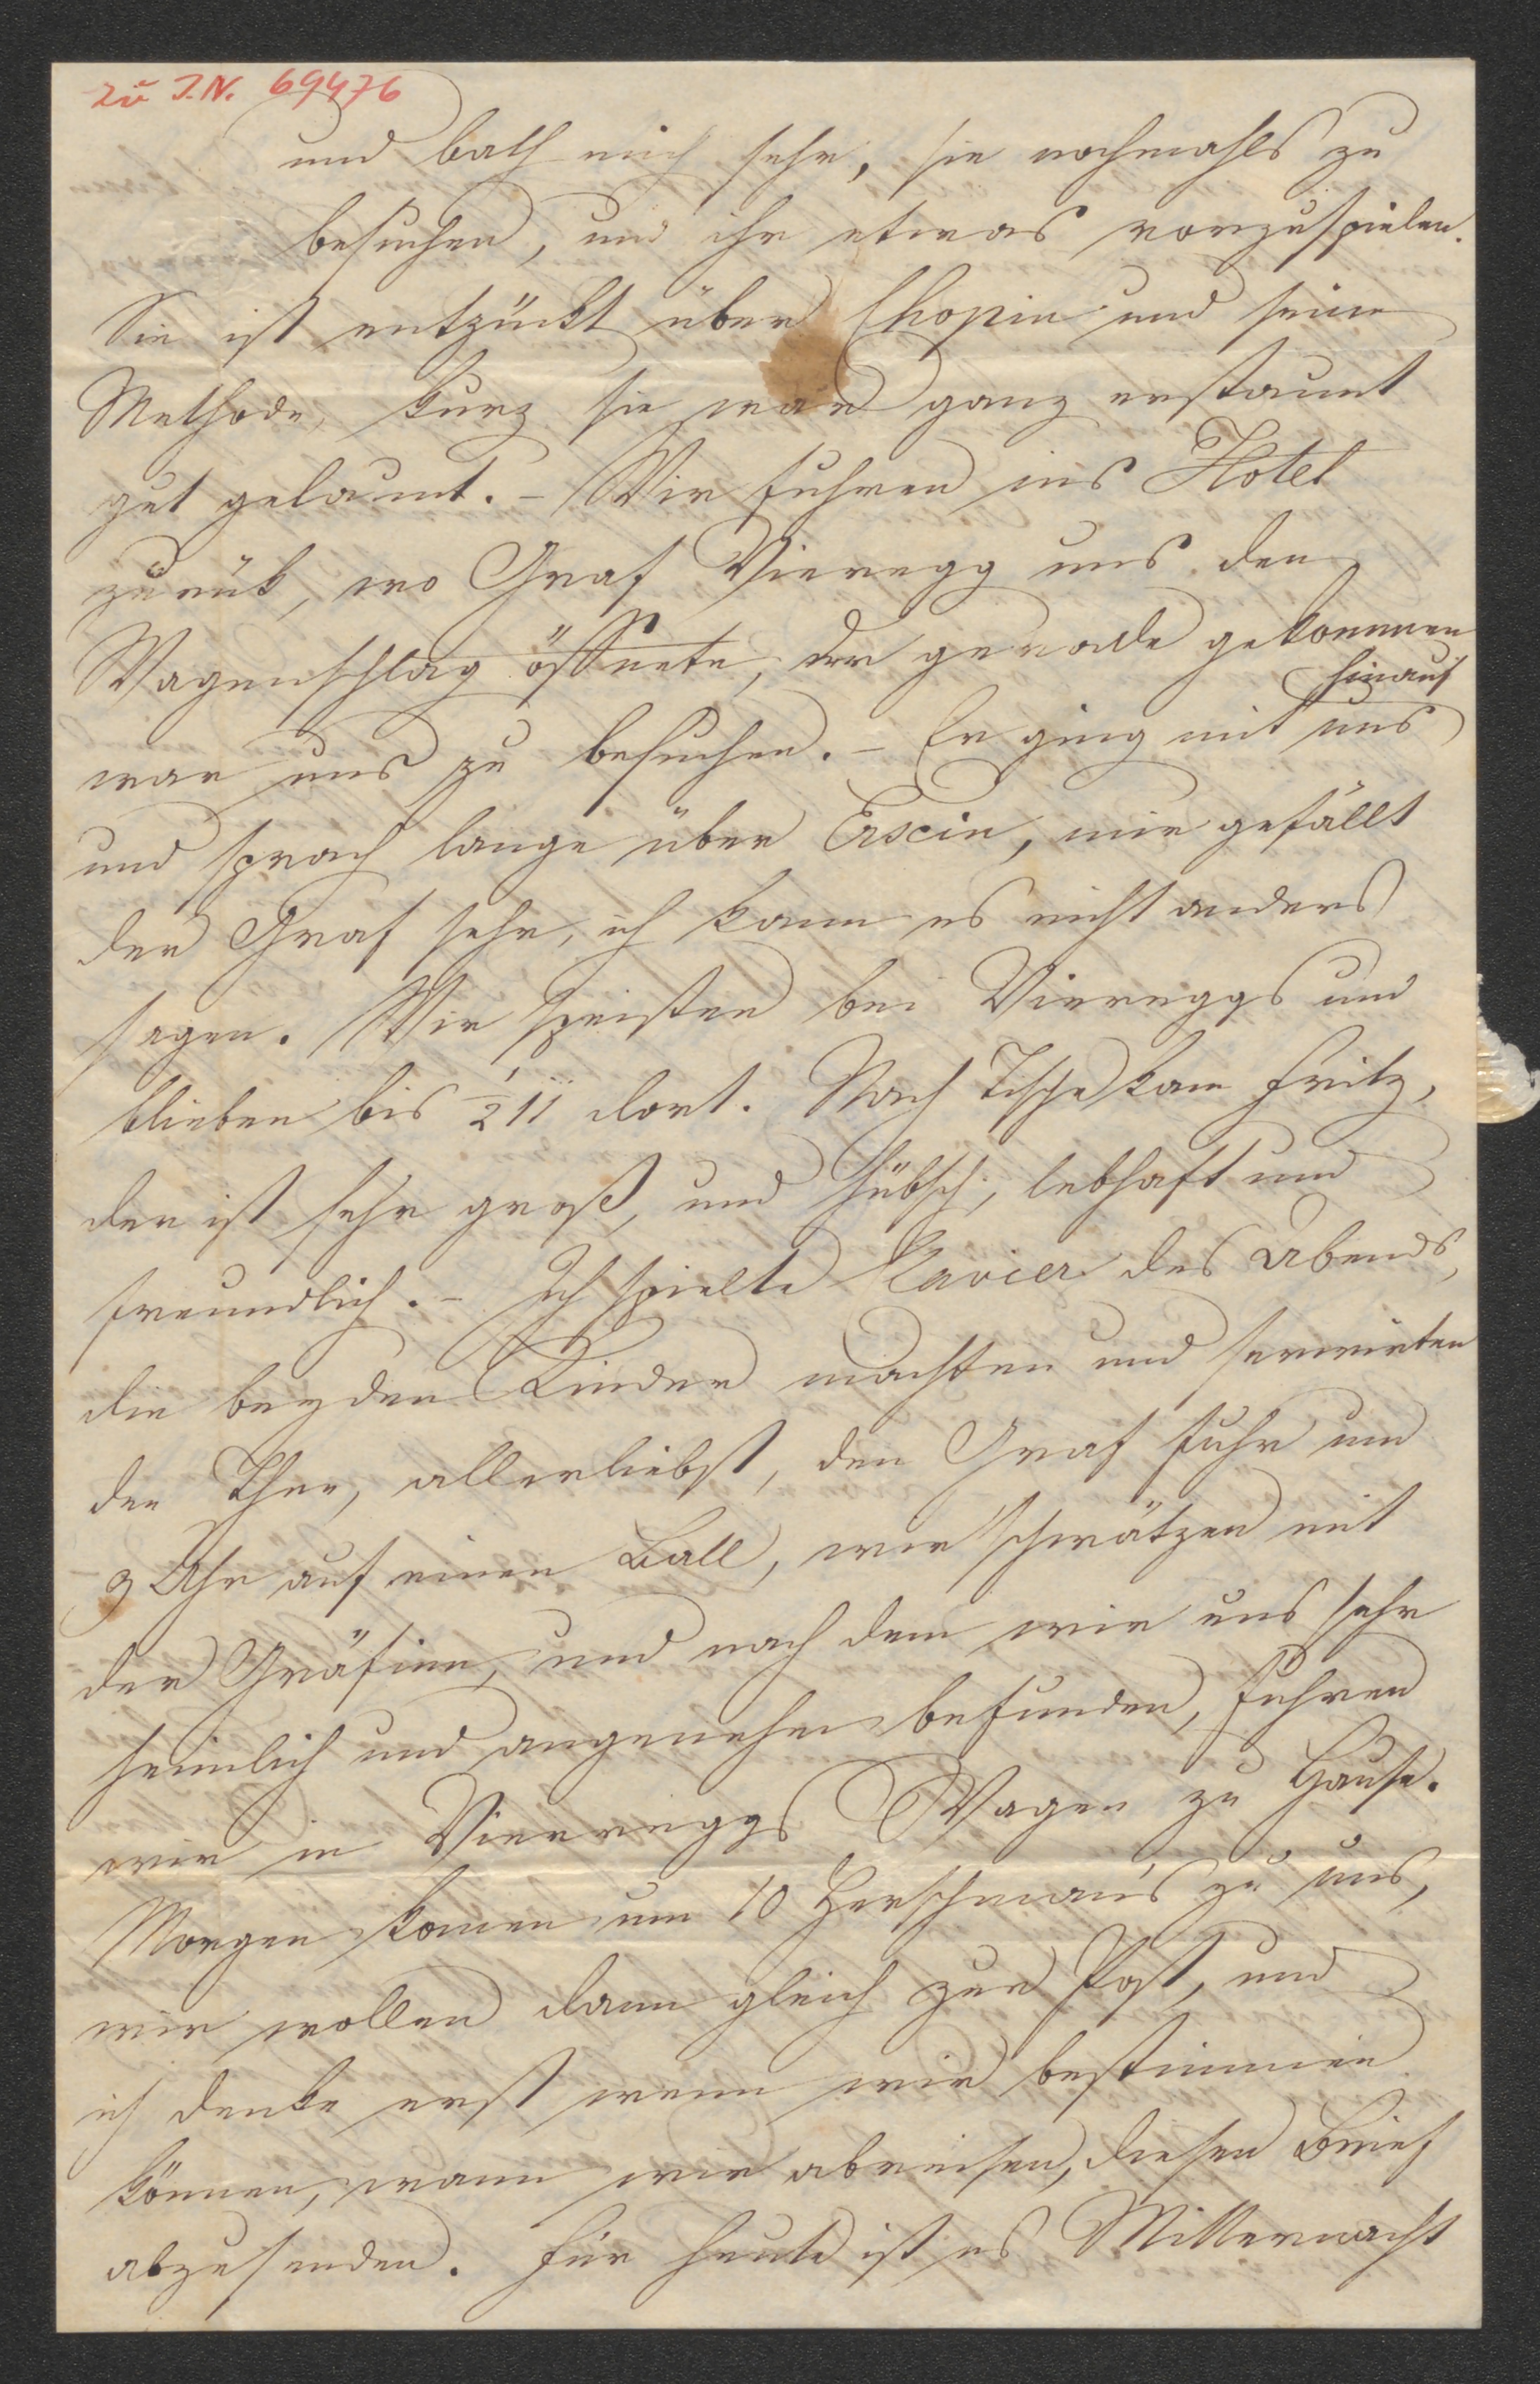 zu I.N. 69476
und bath mich sehr, sie nochmahls zu
besuchen, und ihr etwas vorzuspielen.
Sie ist entzückt über Chopin und seine
Methode, kurz sie war ganz erstaunt
gut gelaunt. – Wir fuhren ins Hotel
zurük, wo Graf Vieregg uns den
Wagenschlag öffnete, der gerade gekommen
hinauf
war uns zu besuchen. – Er ging mit uns
und sprach lange über mir gefällt
der Graf sehr, ich kann es nicht anders
sagen. Wir speisten bei Viereggs und
blieben bis ½11 dort. Nach Tische kam Fritz,
der ist sehr groß, und hübsch, lebhaft und
freundlich. – Ich spielte Clavier des Abends,
die beyden Kinder machten und servirten
den Thee, allerliebst, der Graf fuhr um
9 Uhr auf einen Ball, wir schwätzen mit
der Gräfinn, und nach dem wir uns sehr
heimlich und angenehm befunden, fuhren
wir in Viereggs Wagen zu Hause.
Morgen komen um 10 zu uns,
wir wollen dann gleich zur Post, und
ich denke erst wenn wir bestimmen
können, wann wir abreisen, diesen Brief
abzusenden. Für heute ist es Mitternacht